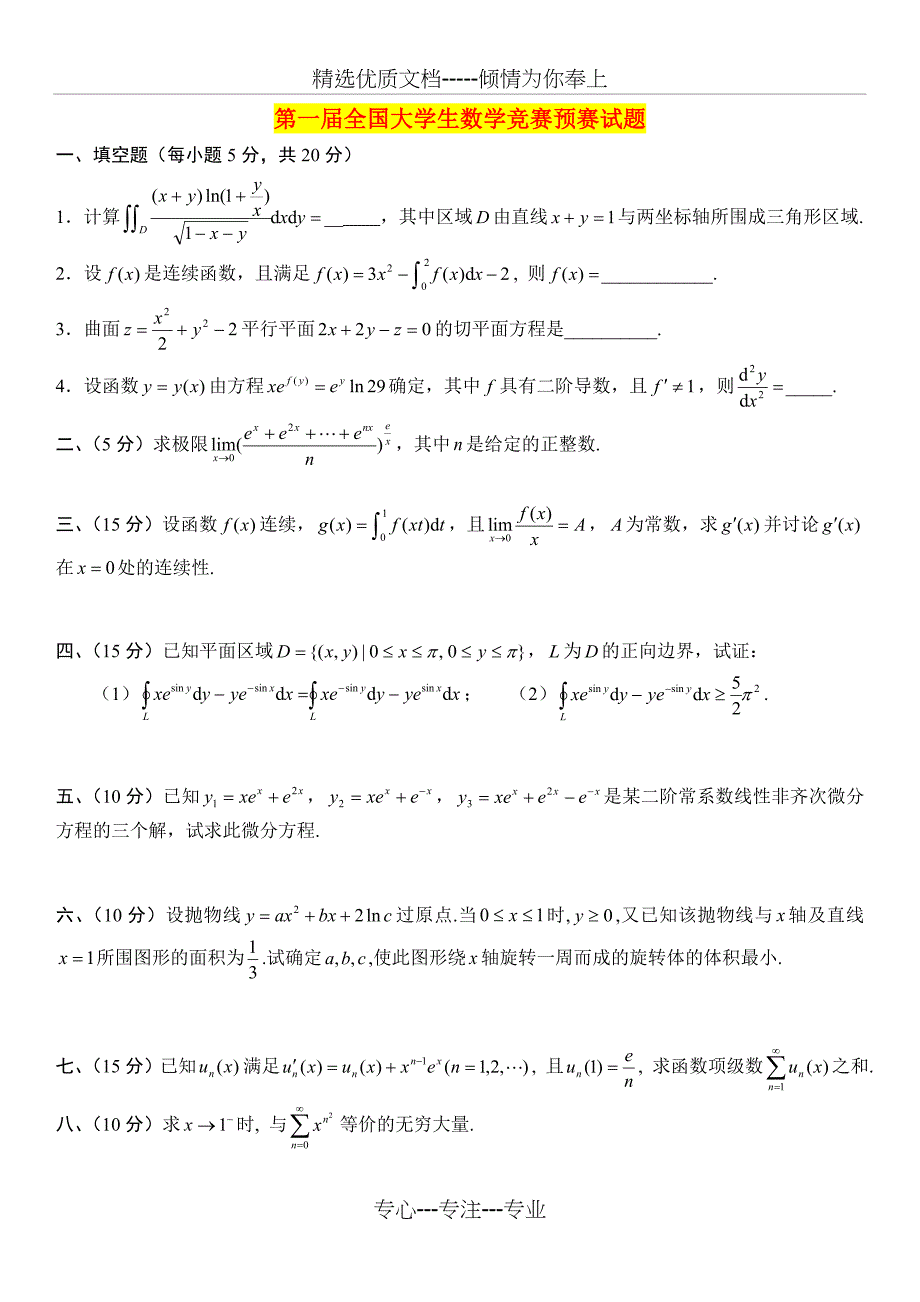 精选优质文档-----倾情为你奉上
第一届全国大学生数学竞赛预赛试题
一、填空题（每小题 5 分，共 20 分）
1．计算 $\iint_D \frac{(x+y)\ln(1+\frac{y}{x})}{\sqrt{1-x-y}}\mathrm{d}x\mathrm{d}y=$ ______，其中区域 $D$ 由直线 $x+y=1$ 与两坐标轴所围成三角形区域.
2．设 $f(x)$ 是连续函数，且满足 $f(x)=3x^2-\int_0^2 f(x)\mathrm{d}x-2$, 则 $f(x)=$____________.
3．曲面 $z=\frac{x^2}{2}+y^2-2$ 平行平面 $2x+2y-z=0$ 的切平面方程是__________.
4．设函数 $y=y(x)$ 由方程 $xe^{f(y)}=e^y\ln 29$ 确定，其中 $f$ 具有二阶导数，且 $f'\neq 1$，则 $\frac{\mathrm{d}^2y}{\mathrm{d}x^2}=$_____.
二、（5 分）求极限 $\lim_{x\to 0}(\frac{e^x+e^{2x}+\cdots+e^{nx}}{n})^{\frac{e}{x}}$，其中 $n$ 是给定的正整数.
三、（15 分）设函数 $f(x)$ 连续，$g(x)=\int_0^1 f(xt)\mathrm{d}t$，且 $\lim_{x\to 0}\frac{f(x)}{x}=A$，$A$ 为常数，求 $g'(x)$ 并讨论 $g'(x)$
在 $x=0$ 处的连续性.
四、（15 分）已知平面区域 $D=\{(x,y)|0\le x\le\pi,0\le y\le\pi\}$，$L$ 为 $D$ 的正向边界，试证：
（1）$\oint_L xe^{\sin y}\mathrm{d}y-ye^{-\sin x}\mathrm{d}x=\oint_L xe^{-\sin y}\mathrm{d}y-ye^{\sin x}\mathrm{d}x$； （2）$\oint_L xe^{\sin y}\mathrm{d}y-ye^{-\sin y}\mathrm{d}x\ge\frac{5}{2}\pi^2$.
五、（10 分）已知 $y_1=xe^x+e^{2x}$，$y_2=xe^x+e^{-x}$，$y_3=xe^x+e^{2x}-e^{-x}$ 是某二阶常系数线性非齐次微分
方程的三个解，试求此微分方程.
六、（10 分）设抛物线 $y=ax^2+bx+2\ln c$ 过原点.当 $0\le x\le 1$ 时, $y\ge 0$,又已知该抛物线与 $x$ 轴及直线
$x=1$ 所围图形的面积为 $\frac{1}{3}$.试确定 $a,b,c$,使此图形绕 $x$ 轴旋转一周而成的旋转体的体积最小.
七、（15 分）已知 $u_n(x)$ 满足 $u_n'(x)=u_n(x)+x^{n-1}e^x(n=1,2,\cdots)$, 且 $u_n(1)=\frac{e}{n}$, 求函数项级数 $\sum_{n=1}^{\infty}u_n(x)$ 之和.
八、（10 分）求 $x\to 1^-$ 时, 与 $\sum_{n=0}^{\infty}x^{n^2}$ 等价的无穷大量.
专心---专注---专业